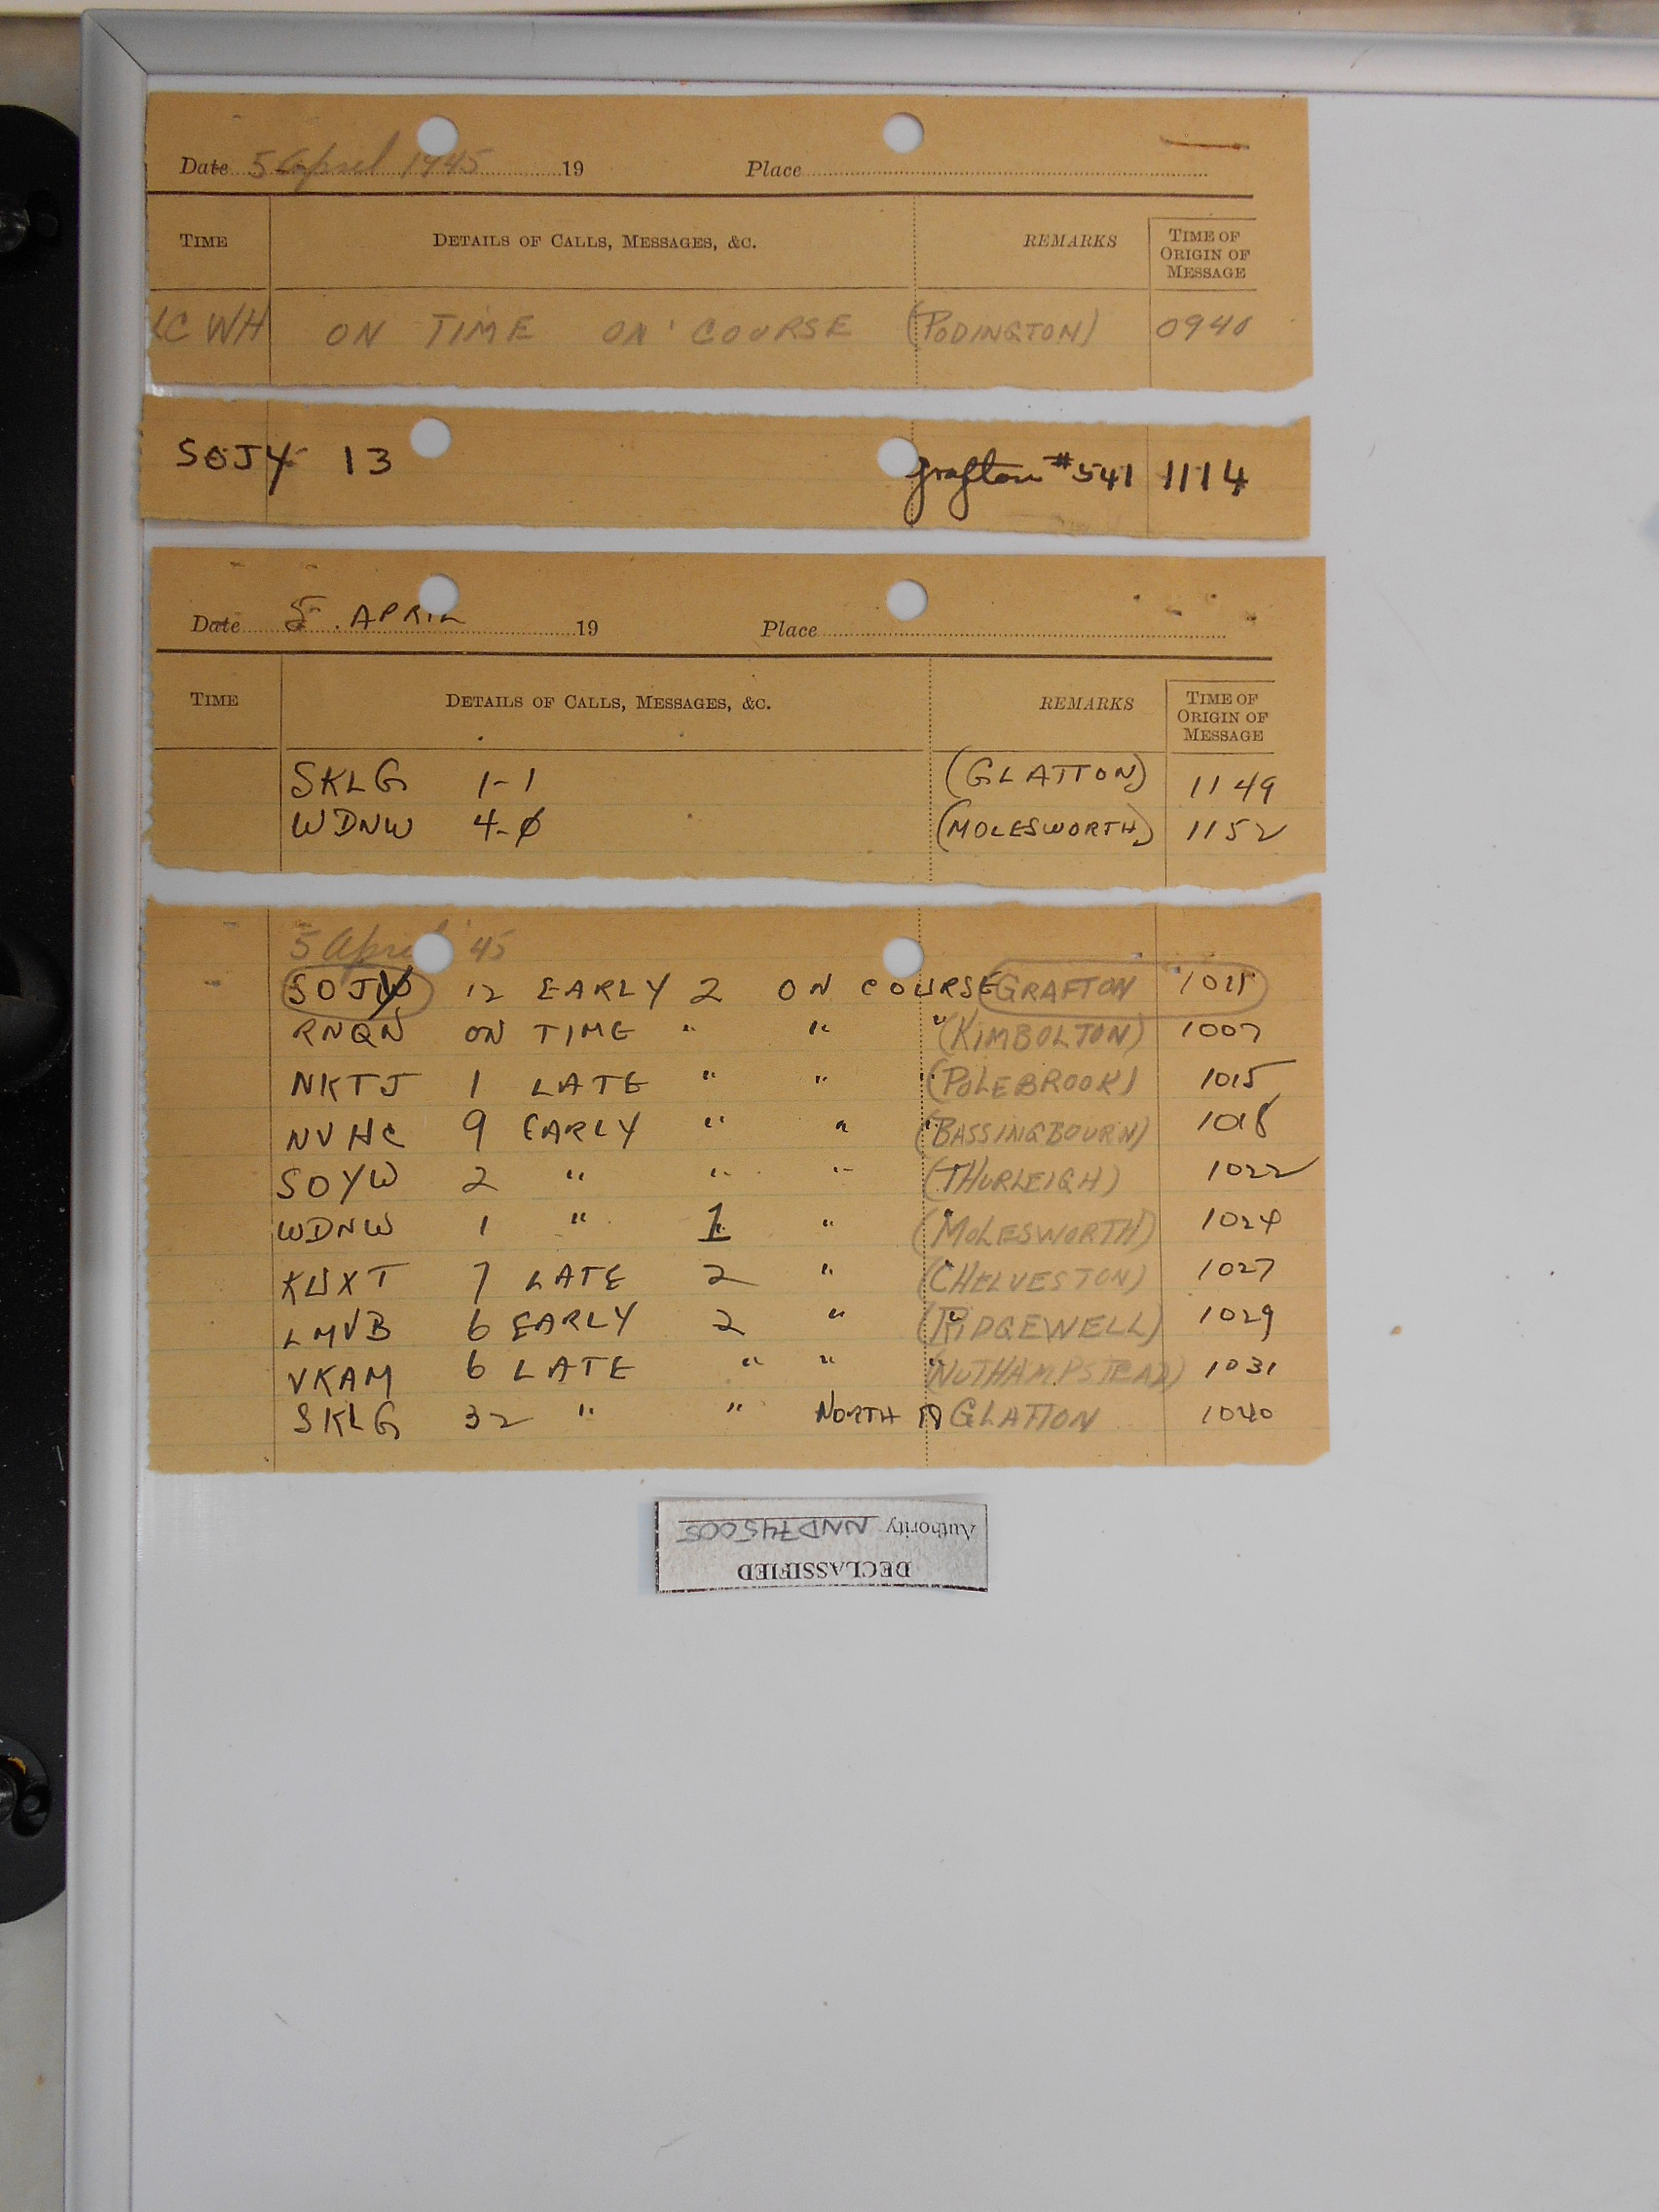 Date 5 April 1945 19 Place
TIME DETAILS OF CALLS, MESSAGES, &C. REMARKS TIME OF ORIGIN OF MESSAGE
CWH ON TIME ON COURSE (PODINGTON) 0940
SOJY 13 Grafton #541 1114
Date 5 APRIL 19 Place
TIME DETAILS OF CALLS, MESSAGES, &C. REMARKS TIME OF ORIGIN OF MESSAGE
SKLG 1-1 (GLATTON) 1149
WDNW 4-0 (MOLESWORTH) 1152
5 April '45
12 EARLY 2 ON COURSE GRAFTON
RNQN ON TIME " " " (KIMBOLTON) 1007
NKTJ 1 LATE " " " (POLEBROOK) 1015
NVHC 9 EARLY " " " (BASSINGBOURN) 1018
SOYW 2 " " " " (THURLEIGH) 1022
WDNW 1 " 1 " " (MOLESWORTH) 1024
KWXT 7 LATE 2 " " (CHELVESTON) 1027
LMVB 6 EARLY 2 " " (RIDGEWELL) 1029
VKAM 6 LATE " " " (NUTHAMPSTEAD) 1031
SKLG 32 " " NORTH GLATTON 1040
DECLASSIFIED
Authority NND745005